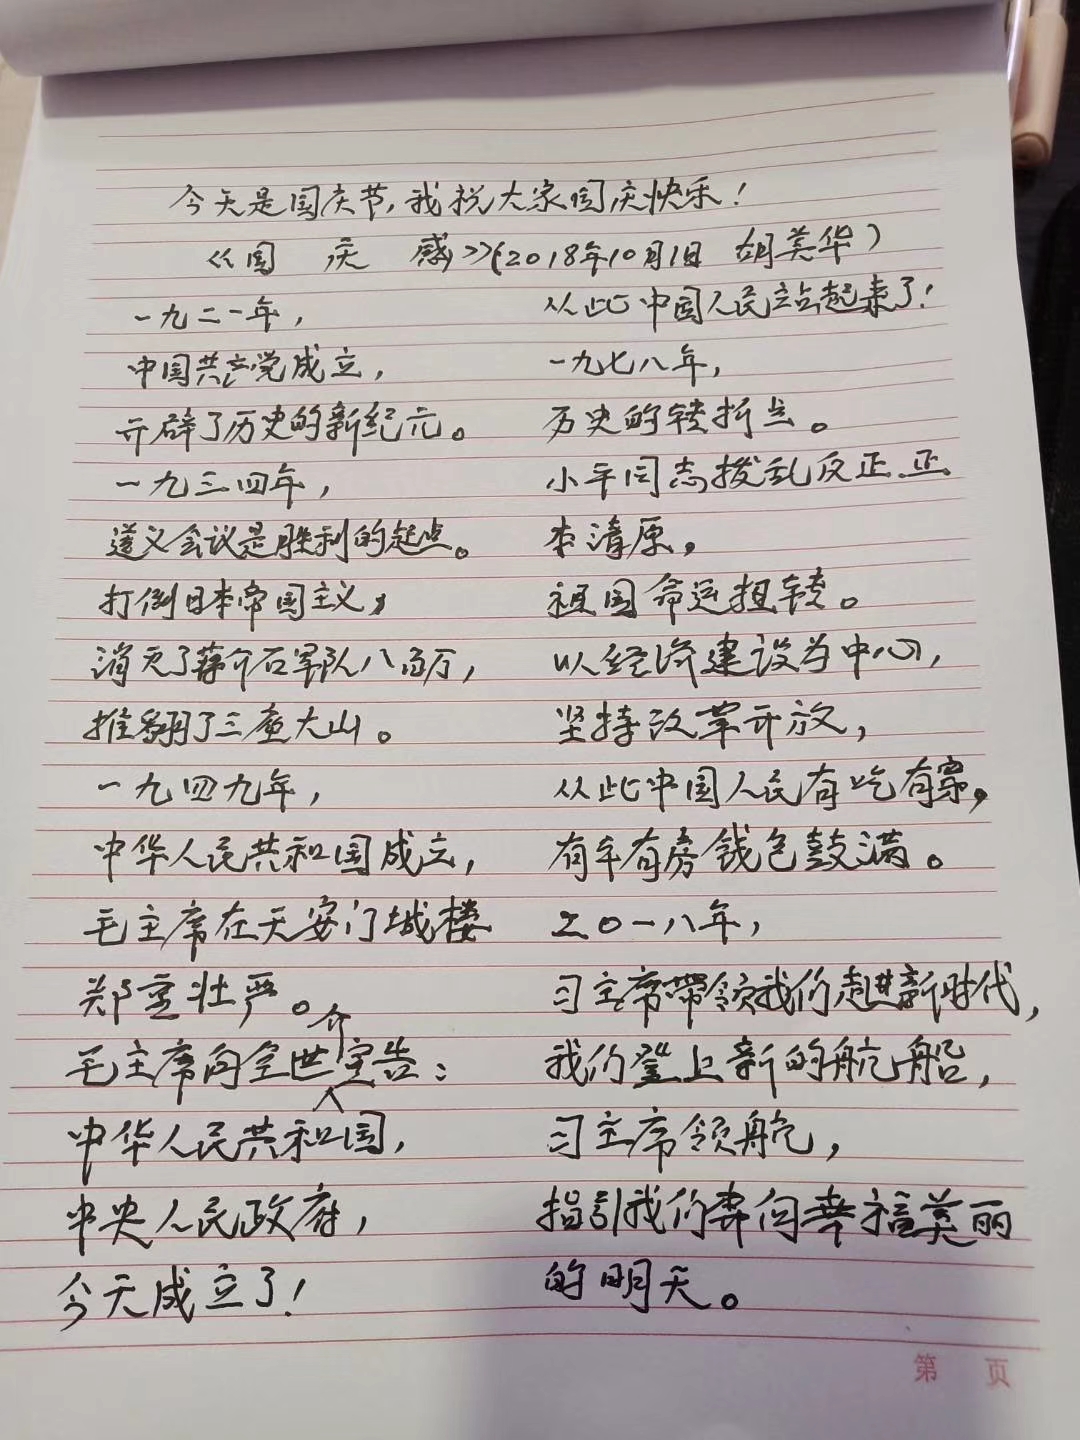 今天是国庆节,我祝大家国庆快乐!
《国 庆 感》(2018年10月1日 胡美华)
一九二一年,
中国共产党成立,
开辟了历史的新纪元。
一九三四年,
遵义会议是胜利的起点。
打倒日本帝国主义,
消灭了蒋介石军队八百万,
推翻了三座大山。
一九四九年,
中华人民共和国成立,
毛主席在天安门城楼
郑重壮严。
毛主席向全世界宣告:
中华人民共和国,
中央人民政府,
今天成立了!
从此中国人民站起来了!
一九七八年,
历史的转折点。
小平同志拨乱反正正
本清原,
祖国命运扭转。
以经济建设为中心,
坚持改革开放,
从此中国人民有吃有穿,
有车有房钱包鼓满。
二〇一八年,
习主席带领我们走进新时代,
我们登上新的航船,
习主席领航,
指引我们奔向幸福美丽
的明天。
第 页